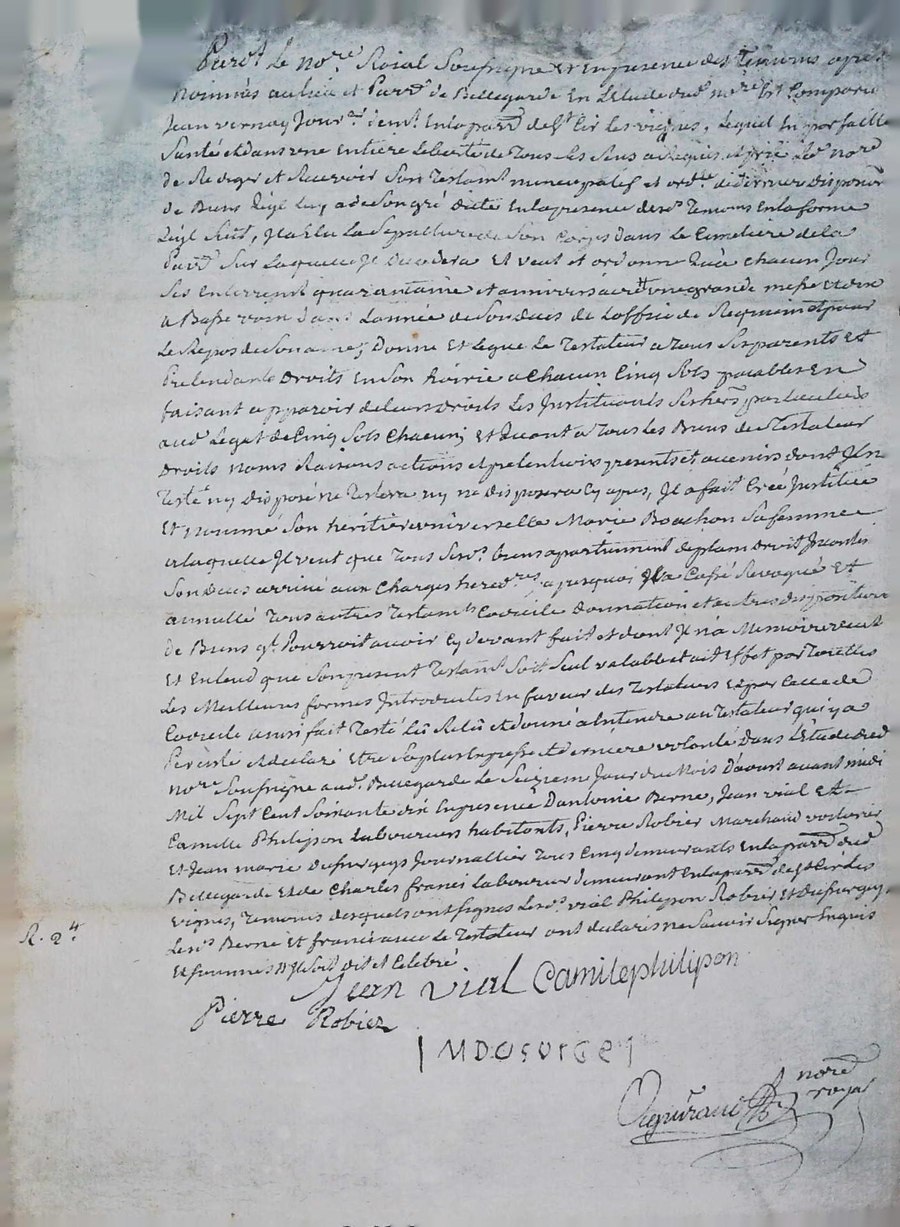 Pard.t Le no.re Roial Soussigne et en presence des Temoins apres
nommés au lieu et parr.e de Bellegarde En L'Etude dud. no.re Est Comparu
Jean vernay Jour.er dem.t En la parr.e de S.t Cir les vignes, Lequel En parfaitte
Santé et dans une Entière Liberté de Tous ses sens a Requis et prié Led. no.re
de Rediger et Recevoir Son Testam.t nuncupatif et ord.ce de derniere disposition
de Biens Leql. a de Son gré dicté En la presence desd. Temoins En la forme
quil Suit, Il a Elu La Sepulture de Son Corps dans Le Cimetiere de la
parr.e Sur Laquelle Il decedera Et veut et ordonne qu'a chacun Jour
Ses Enterrem.t quarantaine et anniversaire une grande messe et
a Basse voix dans L'année de Son deces de L'office de Requiem et pour
Le Repos de Son ame, Donne Et Legue Le Testateur a Tous Ses parents Et
pretendants Droits En Son hoirie a Chacun Cinq Sols payables En
faisant apparoir de leurs Droits Les Instituants Ses her.s particuliers
aud. Legat de Cinq Sols Chacun; Et Quant a Tous Les Biens du Testateur
Droits noms Raisons actions et pretentions presents et avenirs dont Il n'a
Testé ny disposé ne Testera ny ne disposera Cy apres, Il a fait Créé Institué
Et nommé Son héritière universelle Marie Bouchon Sa femme
a laquelle Il veut que Tous Sesd. biens apartiennent de plain Droit Incontinent
Son deces arrivé aux Charges hered.res a Cassé Revoqué Et
annullé Tous autres Testam.ts Codicile donnation et autres dispositions
de Biens q.l Pourroit avoir Cy devant fait et dont Il n'a Memoire veut
Et Entend que Son present Testam.t Soit Seul valable et ait Effet par Toutes
Les Meilleures formes Introduites En faveur des Testateurs Et par Celle de
Codicile ainsi fait Testé Lû Relû et donné a Entendre au Testateur qui y a
Persisté et declaré Etre Sa plus Expresse et derniere volonté Dans L'Etude dud.
no.re Soussigne aud. Bellegarde Le Seizieme Jour du Mois D'aoust avant midi
Mil Sept Cent Soixante dix En presence D'antoine Berne, Jean vial Et
Camille Philipon Laboureurs habitants, Pierre Robier Marchand voiturier
Et Jean marie Dusurgey Journallier Tous Cinq demeurants En la parr.e dud.
Bellegarde Et de Charles france Laboureur demeurant En la parr.e de S.t Cir les
vignes, Temoins desquels ont Signes Lesd. vial Philipon Robier Et Dusurgey,
Lesd. Berne Et france avec Le Testateur ont declaré ne Savoir Signer Enquis
Et Sommes
R. 2.#
Jean vial Camilephilipon
Pierre Robier
IMDUSURGEY
no.re
royal